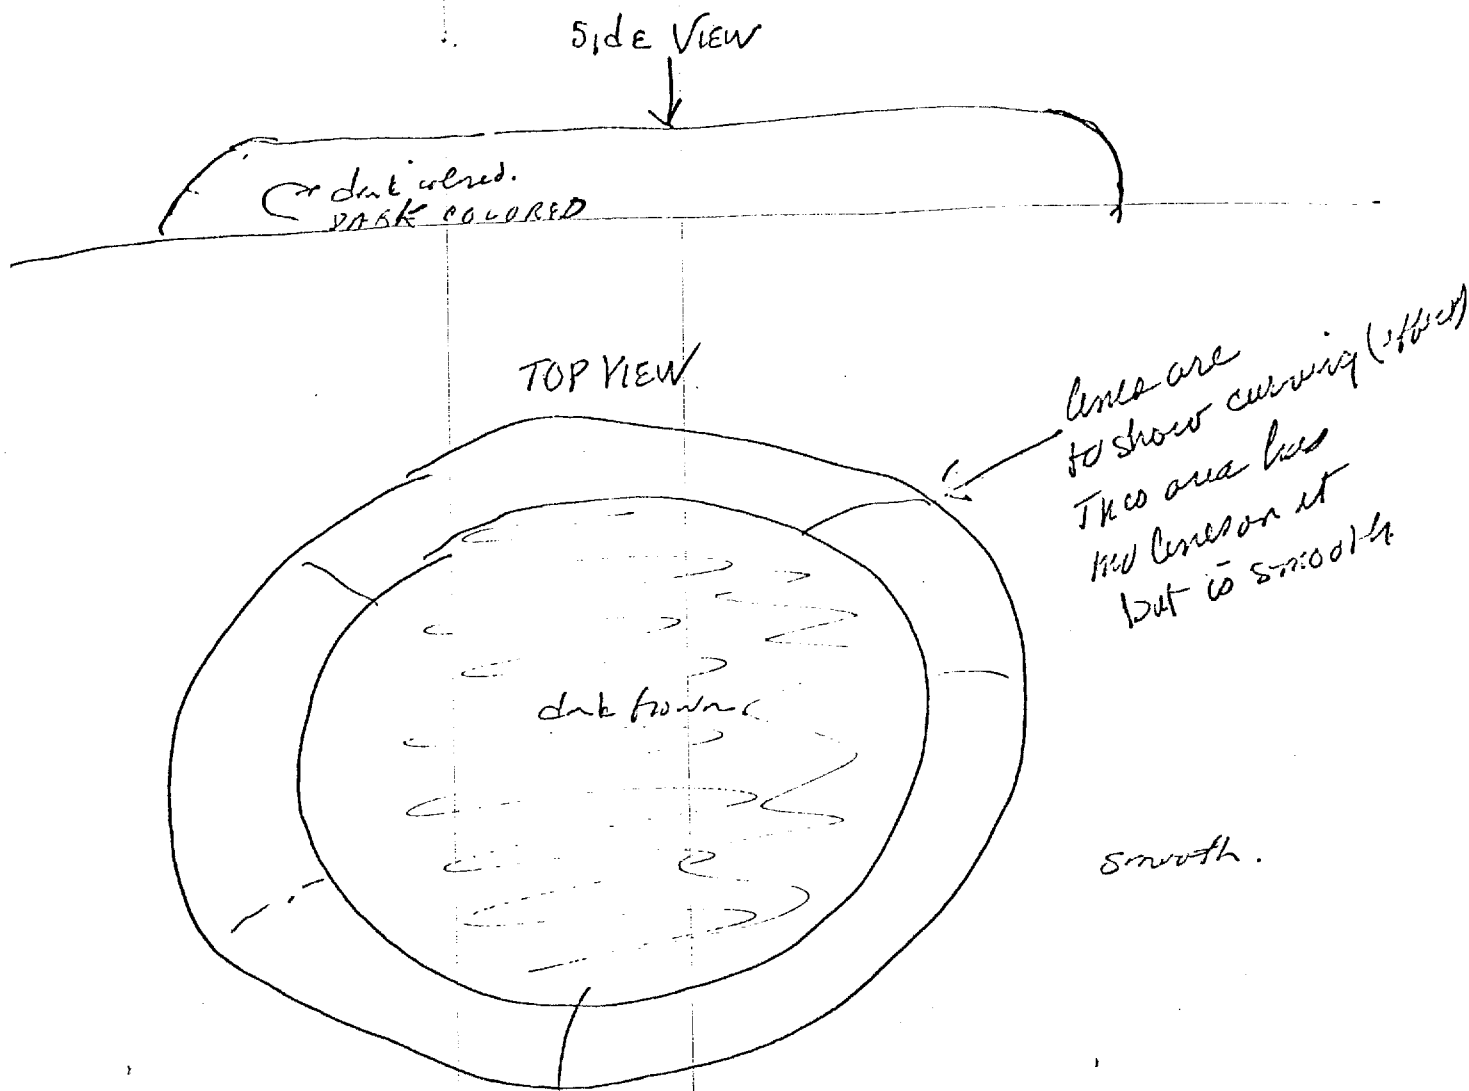 Side VIEW
dark colored.
DARK COLORED
TOP VIEW
lines are
to show curving (effect)
This area has
no lines on it
but is smooth
dark brown
smooth.